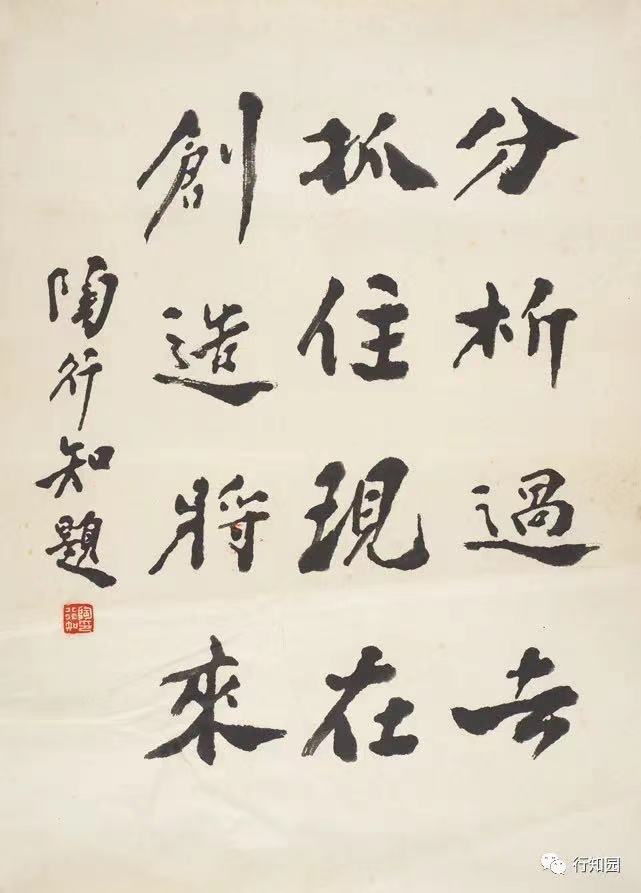 分析過去
抓住現在
創造將來
陶行知題
陶行知
行知园